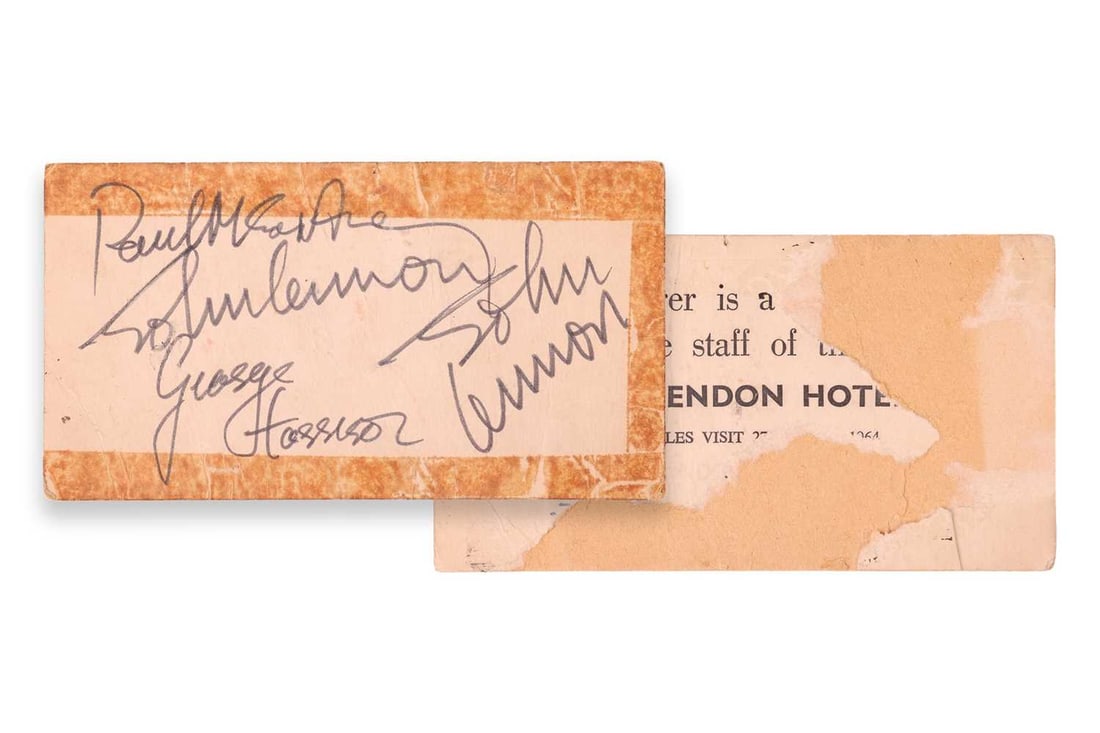 Paul McCartney
John Lennon
John
Lennon
George
Harrison
er is a
staff of
ENDON HOTE
LES VISIT 27 1964